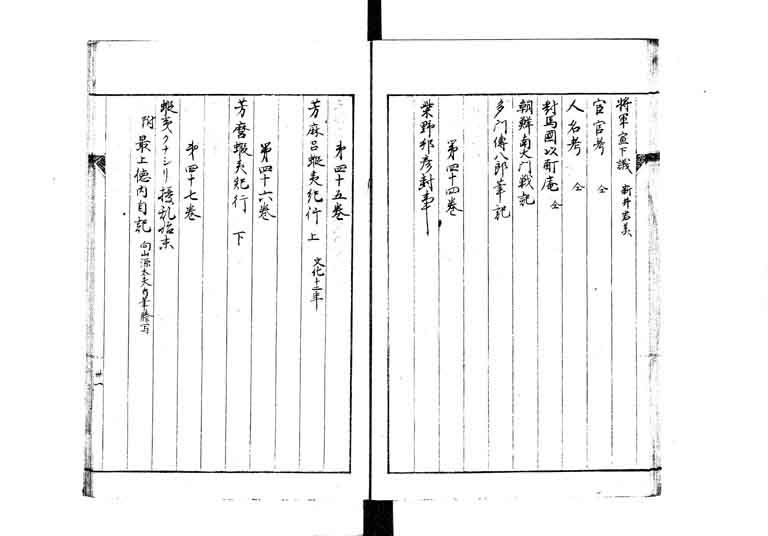 将軍宣下議 新井君美
宦官考 仝
人名考 仝
対馬國以酊庵 仝
朝鮮南大門戦記
多門傳八郎筆記
第四十四巻
柴野邦彦封事
第四十五巻
芳麻呂蝦夷紀行 上 文化十二年
第四十六巻
芳麿蝦夷紀行 下
第四十七巻
蝦夷クナシリ擾乱始末
附 最上徳内自記 向山源太夫自筆謄写